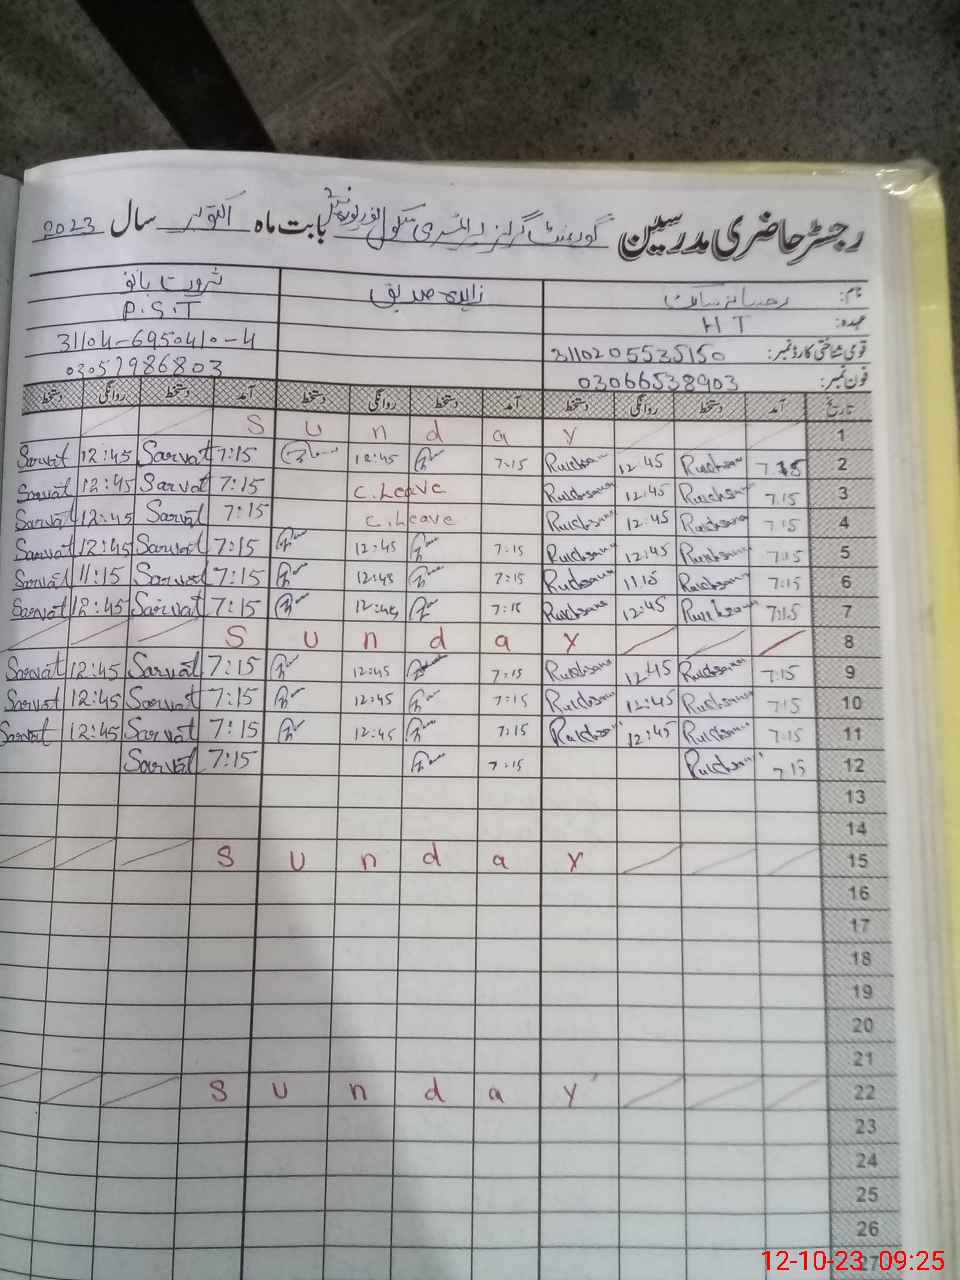 رجسٹر حاضری مدرسین گورنمنٹ گرلز پرائمری سکول بابت ماہ اکتوبر سال 2023
نام: زاہدہ صدیق ثروت بانو
عہدہ: H T P.S.T
قومی شناختی کارڈ نمبر: 3110205535150 31104-6950410-4
فون نمبر: 03066538903 03057986803
تاریخ آمد دستخط روانگی دستخط آمد دستخط روانگی دستخط آمد دستخط روانگی دستخط
S u n d a y 1
Sarvat 12:45 Sarvat 7:15 12:45 7:15 Ruksana 12:45 Ruksana 7.15 2
Sarvat 12:45 Sarvat 7:15 C.Leave Ruksana 12:45 Ruksana 7.15 3
Sarvat 12:45 Sarvat 7:15 C.Leave Ruksana 12:45 Ruksana 7:15 4
Sarvat 12:45 Sarvat 7:15 12:45 7:15 Ruksana 12:45 Ruksana 7:15 5
Sarvat 11:15 Sarvat 7:15 12:45 7:15 Ruksana 11:15 Ruksana 7:15 6
Sarvat 12:45 Sarvat 7:15 12:45 7:15 Ruksana 12:45 Ruksana 7:15 7
S u n d a y 8
Sarvat 12:45 Sarvat 7:15 12:45 7:15 Ruksana 12:45 Ruksana 7:15 9
Sarvat 12:45 Sarvat 7:15 12:45 7:15 Ruksana 12:45 Ruksana 7:15 10
Sarvat 12:45 Sarvat 7:15 12:45 7:15 Ruksana 12:45 Ruksana 7:15 11
Sarvat 7:15 7:15 Ruksana 7 15 12
13
14
S u n d a y 15
16
17
18
19
20
21
S u n d a y 22
23
24
25
26
27
12-10-23 09:25